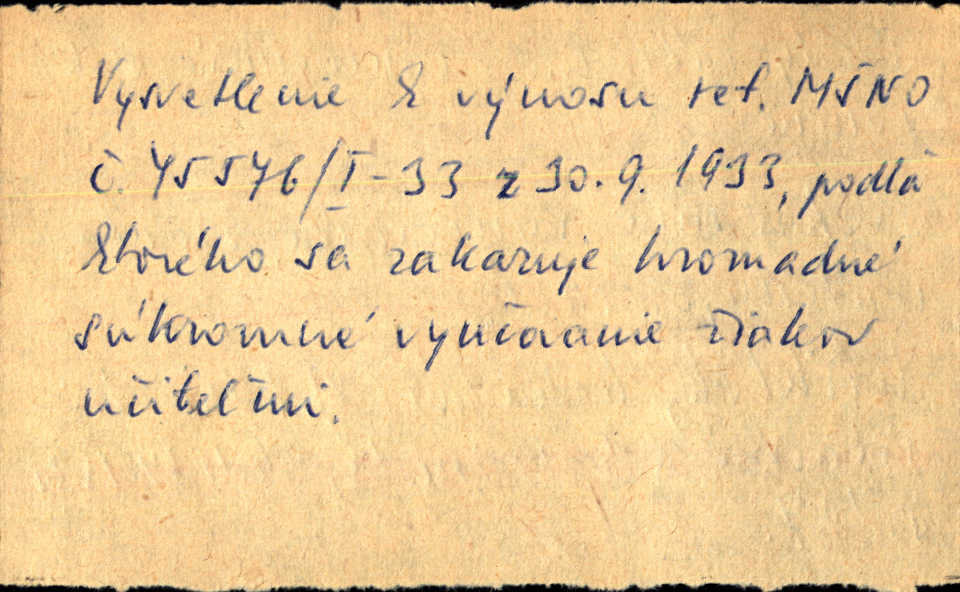 Vysvetlenie k výnosu ref. MŠNO
č. 45546/I-33 z 30.9.1933, podla
ktorého sa zakazuje hromadné
súkromné vyučovanie žiakov
učiteľmi.